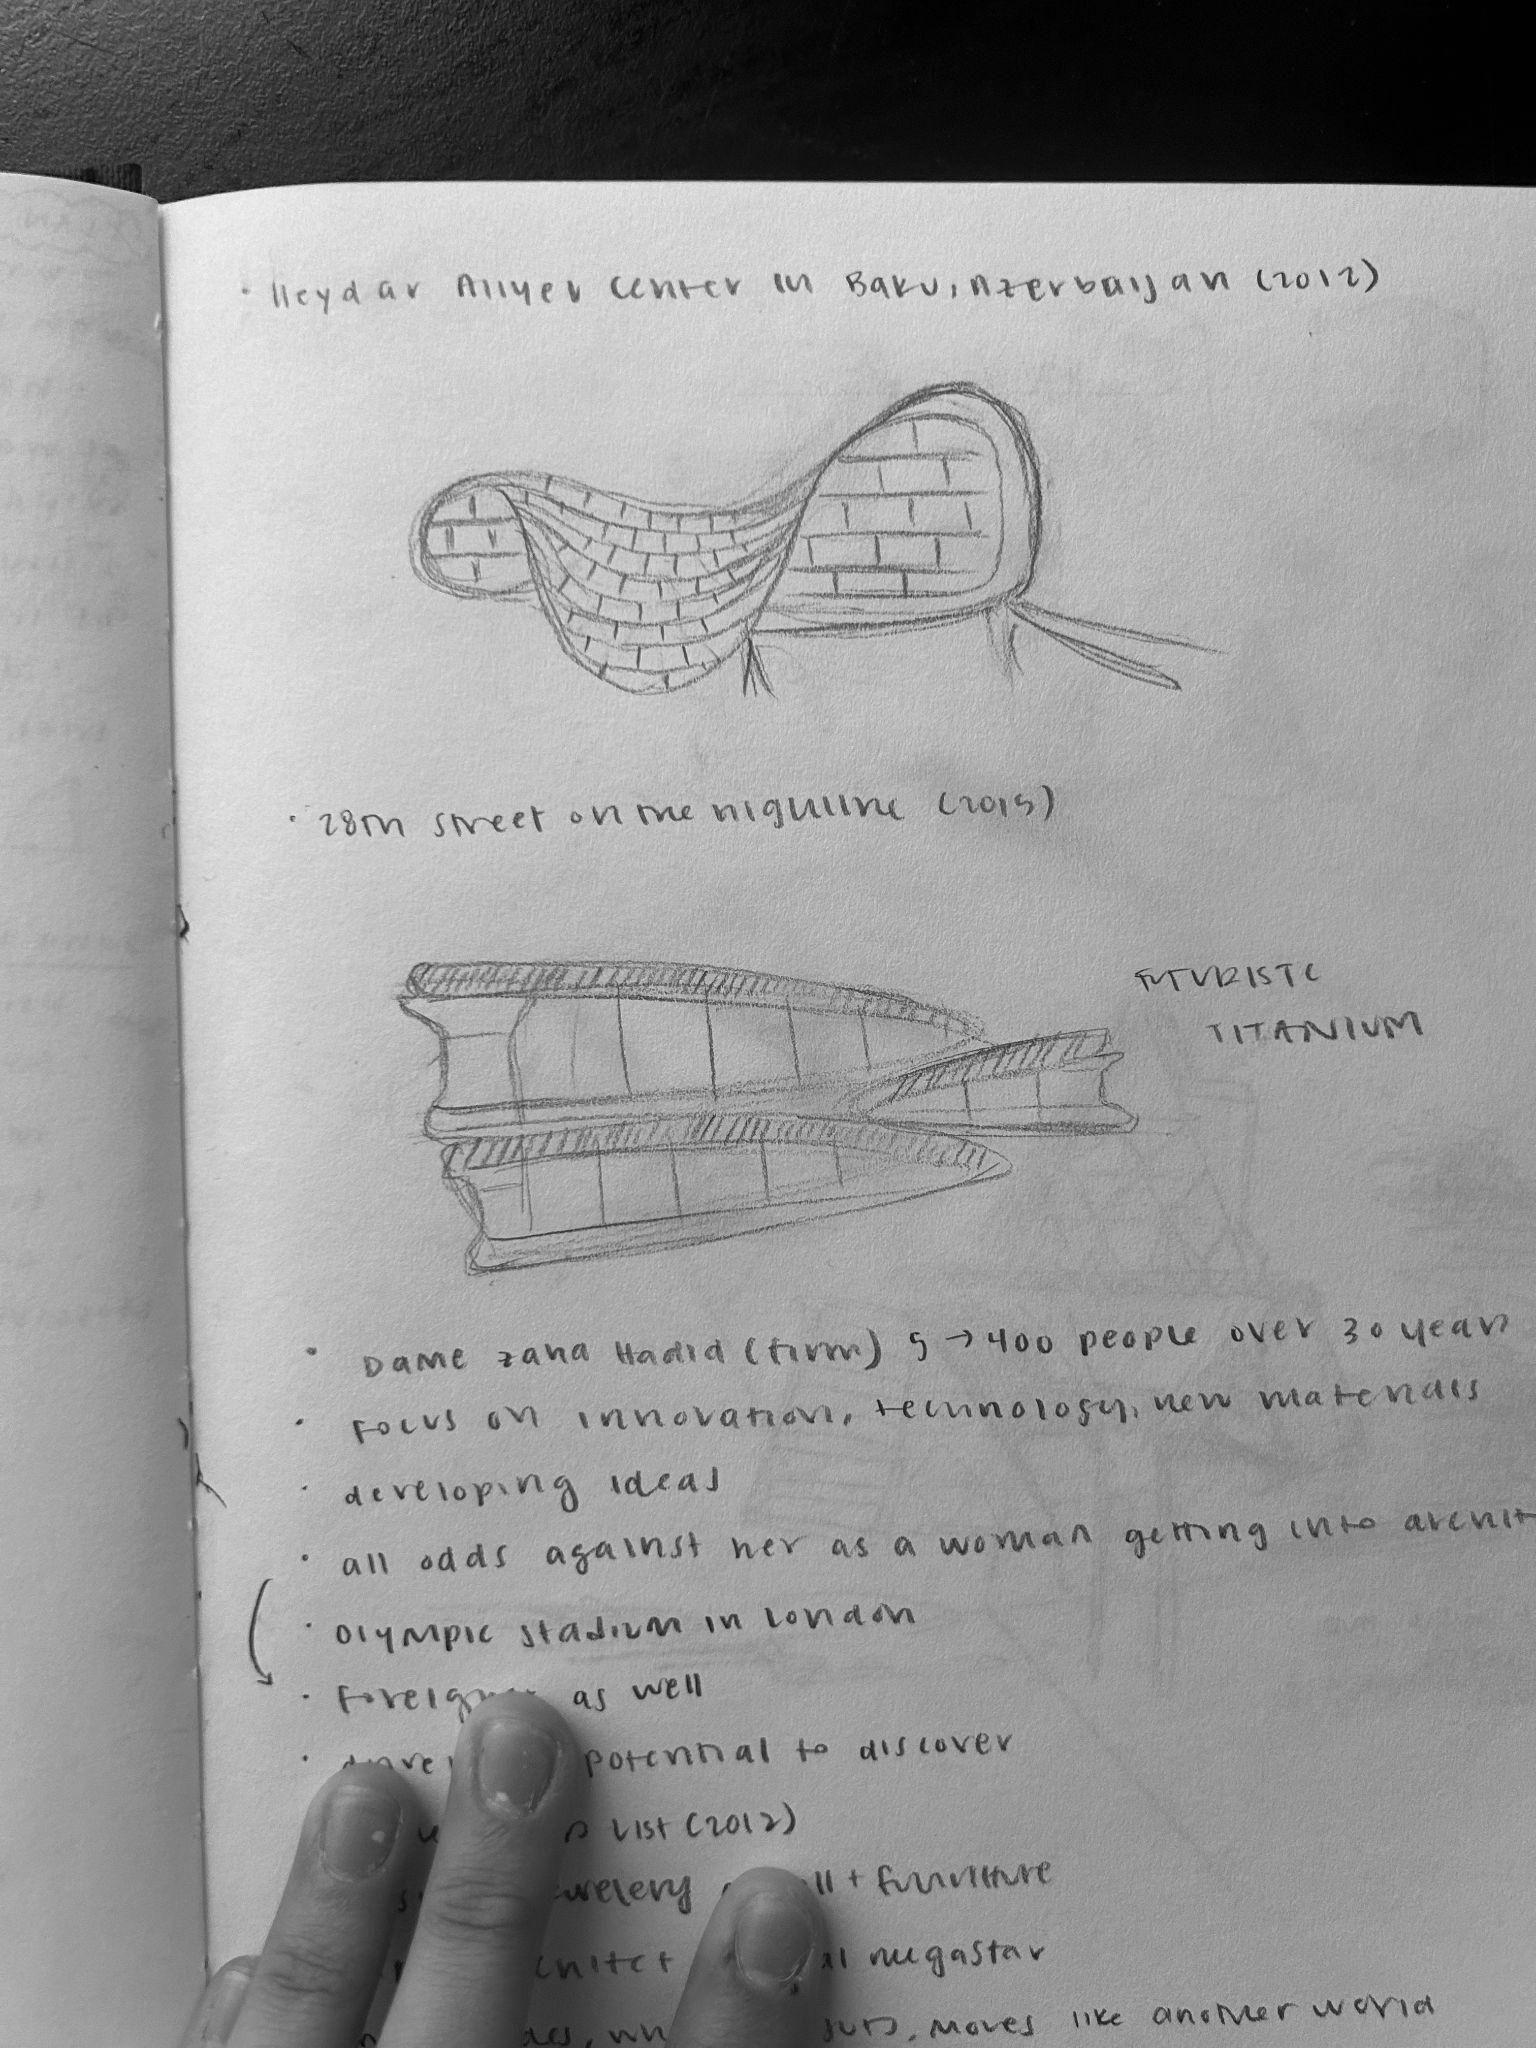 · Heydar Aliyev Center in Baku, Azerbaijan (2012)
· 28th street on the highline (2015)
FUTURISTC
TITANIUM
· Dame Zaha Hadid (firm) 5 → 400 people over 30 years
· Focus on innovation, technology, new materials
· developing ideas
· all odds against her as a woman getting into archit
· Olympic stadium in London
· Foreigner as well
· potential to discover
list (2012)
jewelery + furniture
megastar
moves like another world